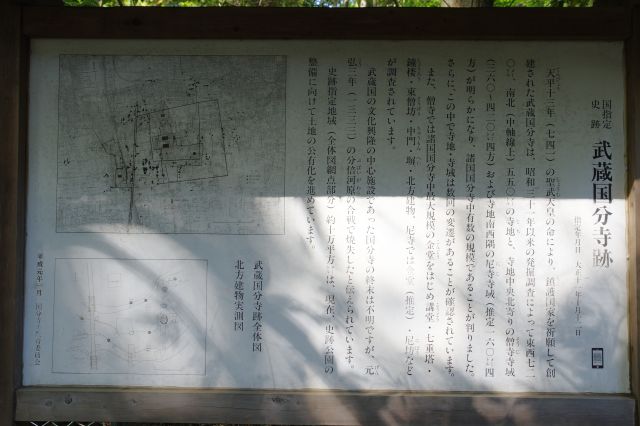 国指定
史跡
武蔵国分寺跡
指定年月日 大正十一年十月十二日
天平十三年(七四一)の聖武天皇の命により、鎮護国家を祈願して創
建された武蔵国分寺は、昭和三十一年以来の発掘調査によって東西七二
〇㍍、南北(中軸線上)五五〇㍍の寺地と、寺地中央北寄りの僧寺寺域
(三六〇~四二〇㍍四方)および寺地南西隅の尼寺寺域(推定一六〇㍍四
方)が明らかになり、諸国国分寺中有数の規模であることが判りました。
さらに、この中で寺地・寺域は数回の変遷があることが確認されています。
また、僧寺では諸国国分寺中最大規模の金堂をはじめ講堂・七重塔・
鐘楼・東僧坊・中門・塀・北方建物、尼寺では金堂(推定)・尼坊など
が調査されています。
武蔵国の文化興隆の中心施設であった国分寺の終末は不明ですが、元
弘三年(一三三三)の分倍河原の合戦で焼失したと伝えられています。
史跡指定地域(全体図網点部分)約十万平方㍍は、現在、史跡公園の
整備に向けて土地の公有化を進めています。
武蔵国分寺跡全体図
北方建物実測図
平成元年 月 国分寺市教育委員会